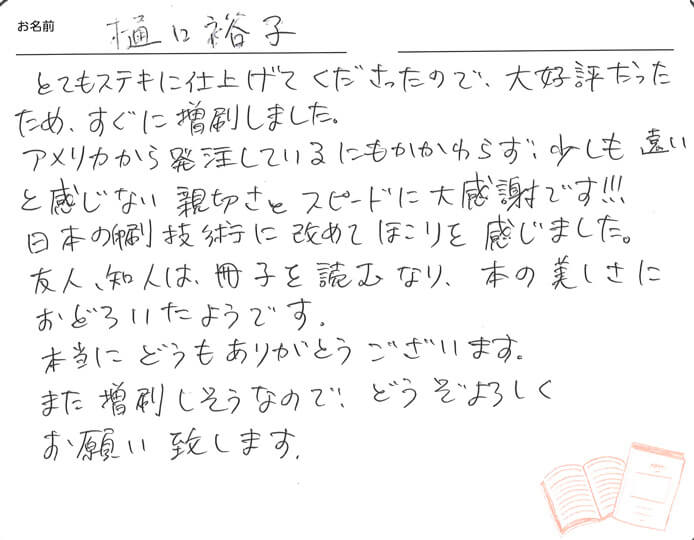 お名前 樋口裕子
とてもステキに仕上げてくださったので、大好評だった
ため、すぐに増刷しました。
アメリカから発注しているにもかかわらず、少しも遠い
と感じない親切さとスピードに大感謝です!!!
日本の印刷技術に改めてほこりを感じました。
友人、知人は、冊子を読むなり、本の美しさに
おどろいたようです。
本当にどうもありがとうございます。
また増刷しそうなので、どうぞよろしく
お願い致します。